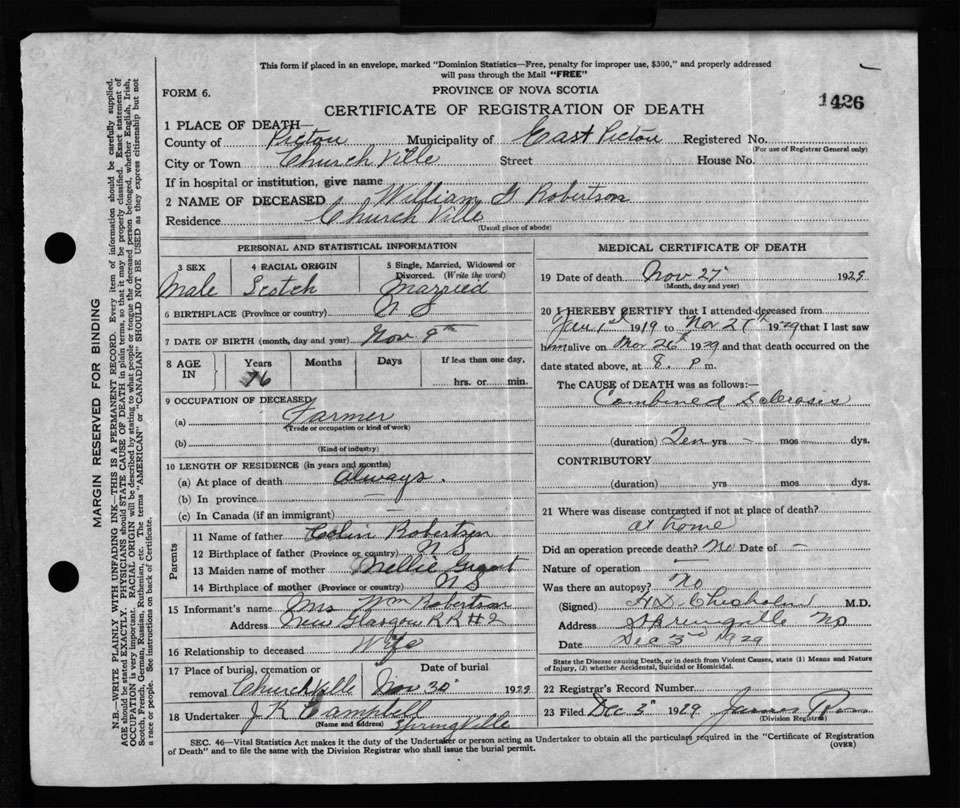 This form if placed in an envelope, marked "Dominion Statistics—Free, penalty for improper use, $300," and properly addressed
will pass through the Mail "FREE"
FORM 6.
PROVINCE OF NOVA SCOTIA
1426
CERTIFICATE OF REGISTRATION OF DEATH
1 PLACE OF DEATH—
County of Pictou Municipality of East Pictou Registered No.
(For use of Registrar General only)
City or Town Church Ville Street House No.
If in hospital or institution, give name
2 NAME OF DECEASED William G Robertson
Residence Church Ville
(Usual place of abode)
PERSONAL AND STATISTICAL INFORMATION
3 SEX 4 RACIAL ORIGIN 5 Single, Married, Widowed or Divorced. (Write the word)
Male Scotch Married
6 BIRTHPLACE (Province or country) N S
7 DATE OF BIRTH (month, day and year) Nov 9th
8 AGE IN Years Months Days If less than one day,
76 hrs. or min.
9 OCCUPATION OF DECEASED
(a) Farmer
(Trade or occupation or kind of work)
(b)
(Kind of industry)
10 LENGTH OF RESIDENCE (in years and months)
(a) At place of death Always.
(b) In province —
(c) In Canada (if an immigrant) —
Parents
11 Name of father Colin Robertson
12 Birthplace of father (Province or country) N S
13 Maiden name of mother Mellie Grant
14 Birthplace of mother (Province or country) N S
15 Informant's name Mrs Wm Robertson
Address New Glasgow R R #2
16 Relationship to deceased Wife
17 Place of burial, cremation or removal Churchville Date of burial Nov 30th 1929
18 Undertaker J K Campbell
(Name and address) Springville
MEDICAL CERTIFICATE OF DEATH
19 Date of death Nov 27th 1929
(Month, day and year)
20 I HEREBY CERTIFY that I attended deceased from
1st 1919 to Nov 27th 1929 that I last saw
him alive on Nov 26th 1929 and that death occurred on the
date stated above, at 8. P m.
The CAUSE of DEATH was as follows:—
Combined Sclerosis
(duration) Ten yrs - mos - dys.
CONTRIBUTORY
(duration) yrs mos dys.
21 Where was disease contracted if not at place of death?
at home
Did an operation precede death? No Date of —
Nature of operation —
Was there an autopsy? No
(Signed) H D Chisholm M.D.
Address Springville NS
Date Dec 3rd 1929
State the Disease causing Death, or in death from Violent Causes, state (1) Means and Nature
of Injury, (2) whether Accidental, Suicidal or Homicidal.
22 Registrar's Record Number
23 Filed Dec 3rd 1929 James
(Division Registrar)
SEC. 46—Vital Statistics Act makes it the duty of the Undertaker or person acting as Undertaker to obtain all the particulars required in the "Certificate of Registration
of Death" and to file the same with the Division Registrar who shall issue the burial permit. (OVER)
MARGIN RESERVED FOR BINDING
N.B.—WRITE PLAINLY WITH UNFADING INK—THIS IS A PERMANENT RECORD. Every item of information should be carefully supplied.
AGE should be stated EXACTLY. PHYSICIANS should STATE CAUSE OF DEATH in plain terms, so that it may be properly classified. Exact statement of
OCCUPATION is very important. RACIAL ORIGIN will be described by stating to what people or tongue the deceased person belonged, whether English, Irish,
Scotch, French, German, Russian, Ruthenian, etc. The terms "AMERICAN" or "CANADIAN" SHOULD NOT BE USED as they express citizenship but not
a race or people. See instructions on back of Certificate.